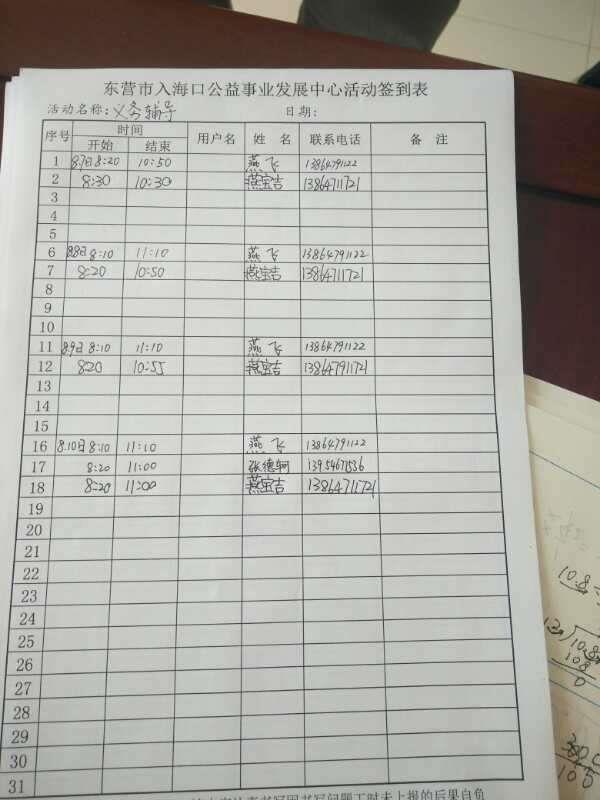 东营市入海口公益事业发展中心活动签到表
活动名称:义务辅导 日期:
序号 时间 用户名 姓 名 联系电话 备 注
开始 结束
1 8.7日 8:20 10:50 燕飞 13864791122
2 8:30 10:30 燕宝吉 13864711721
3
4
5
6 8.8日 8:10 11:10 燕飞 13864791122
7 8:20 10:50 燕宝吉 13864711721
8
9
10
11 8.9日 8:10 11:10 燕飞 13864791122
12 8:20 10:55 燕宝吉 13864711721
13
14
15
16 8.10日 8:10 11:10 燕飞 13864791122
17 8:20 11:00 张德轲
18 8:20 11:00 燕宝吉 13864711721
19
20
21
22
23
24
25
26
27
28
29
30
31
书写问题工时未上报的后果自负
10.8
10.8
108
0
105